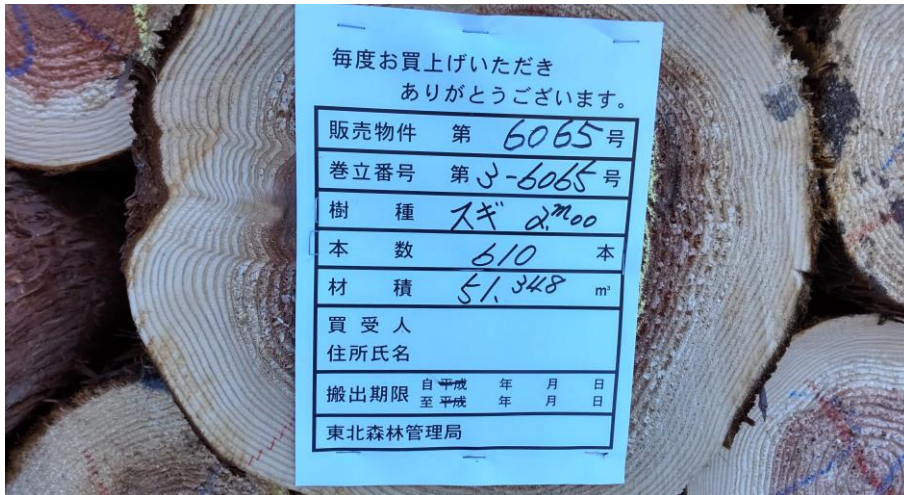 毎度お買上げいただき
ありがとうございます。
販売物件 第 6065 号
巻立番号 第 3-6065 号
樹 種 スギ 2.m00
本 数 610 本
材 積 51.348 m³
買受人
住所氏名
搬出期限 自 平成 年 月 日
至 平成 年 月 日
東北森林管理局